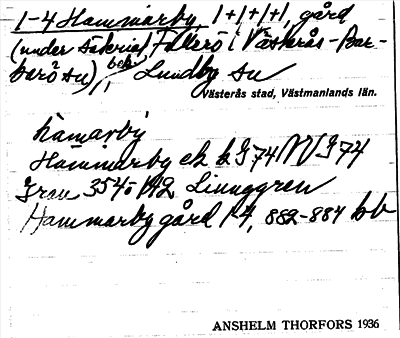 1-4 Hammarby, 1+1+1+1, gård
(under Fullerö i Västerås-Bar-
karö sn) Lundby sn
Västerås stad, Västmanlands län.
hamarby
Hammarby ek k J74 W J74
Gran 354-142 Linnggren
Hammarby gård 1-4, 882-884 bb
ANSHELM THORFORS 1936